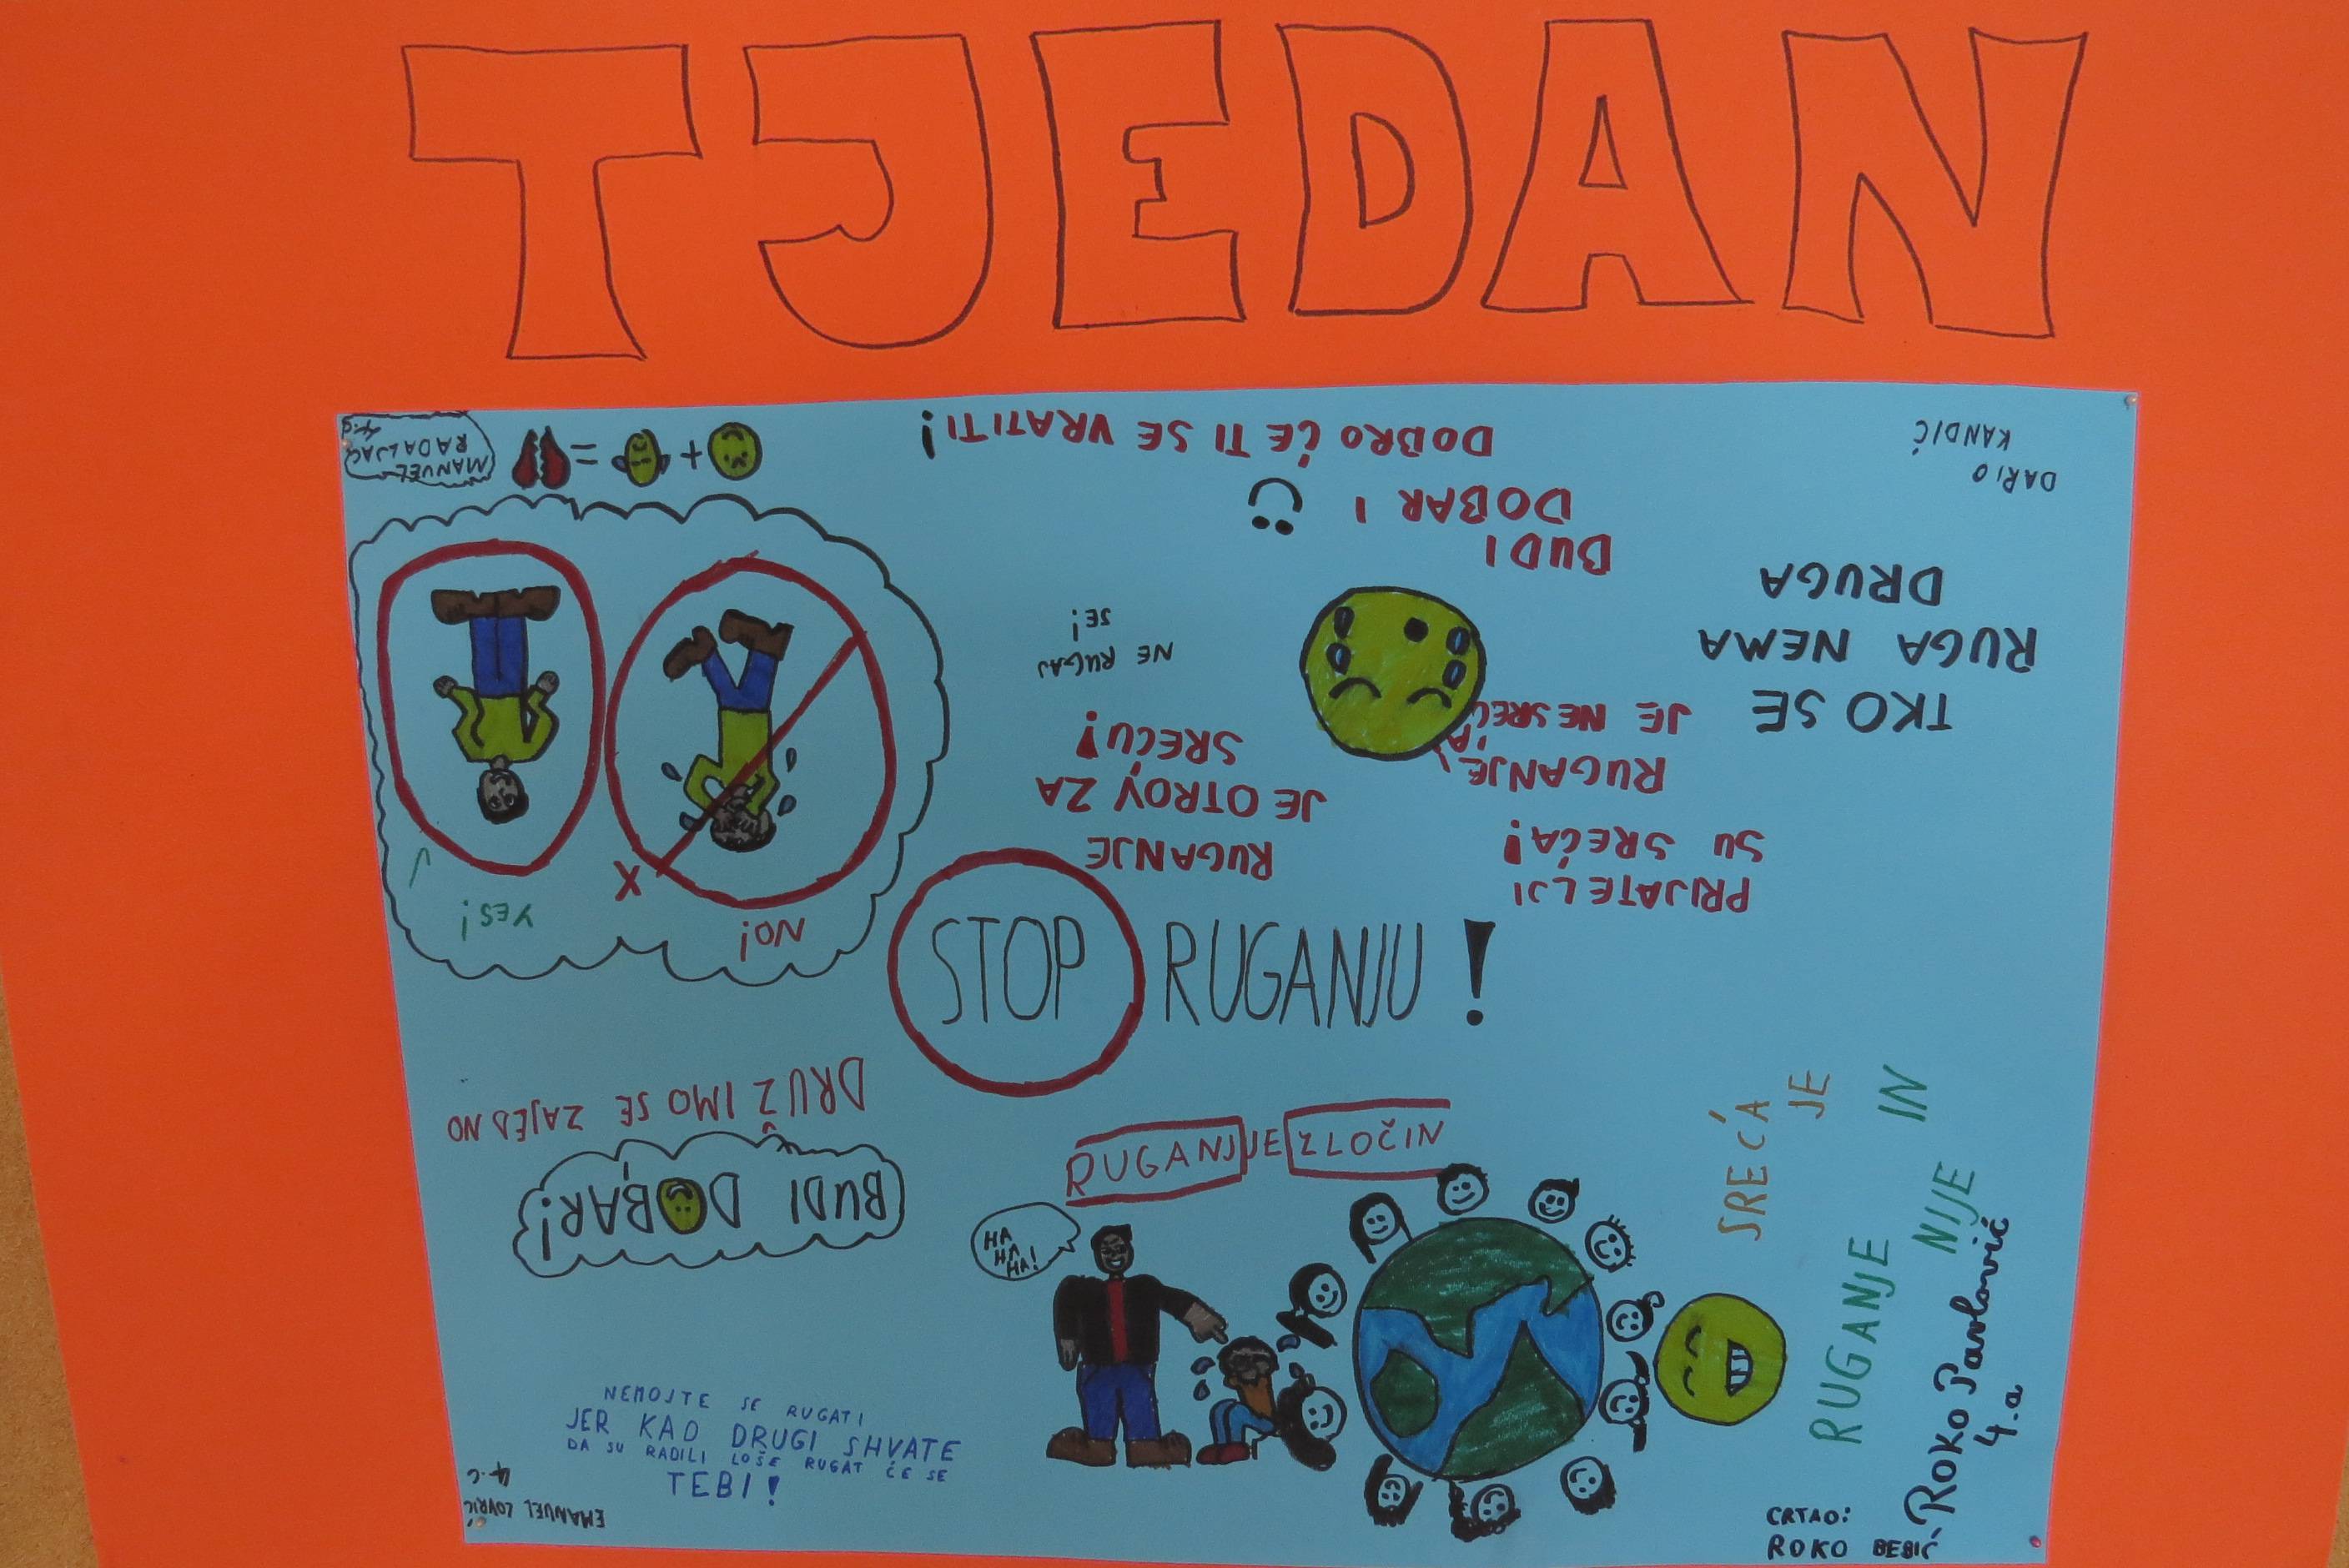 TJEDAN
MANUEL
RADALJAC
4.c
DOBRO ĆE TI SE VRATITI!
DOBAR I
BUDI
DARIO
KANDIĆ
TKO SE
RUGA NEMA
DRUGA
NE RUGAJ
SE!
RUGANJE
JE OTROV ZA
SREĆU!
RUGANJE
JE NESREĆA
PRIJATELJI
SU SREĆA!
YES!
NO!
X
STOP RUGANJU!
DRUŽIMO SE ZAJEDNO
BUDI DOBAR!
RUGANJ JE ZLOČIN
HA
HA
HA!
SREĆA
JE
IN
RUGANJE
NIJE
Roko Pavlović
4.a
NEMOJTE SE RUGATI
JER KAD DRUGI SHVATE
DA SU RADILI LOŠE RUGAT ĆE SE
TEBI!
EMANUEL LOVRIĆ
4.c
CRTAO:
ROKO BEBIĆ